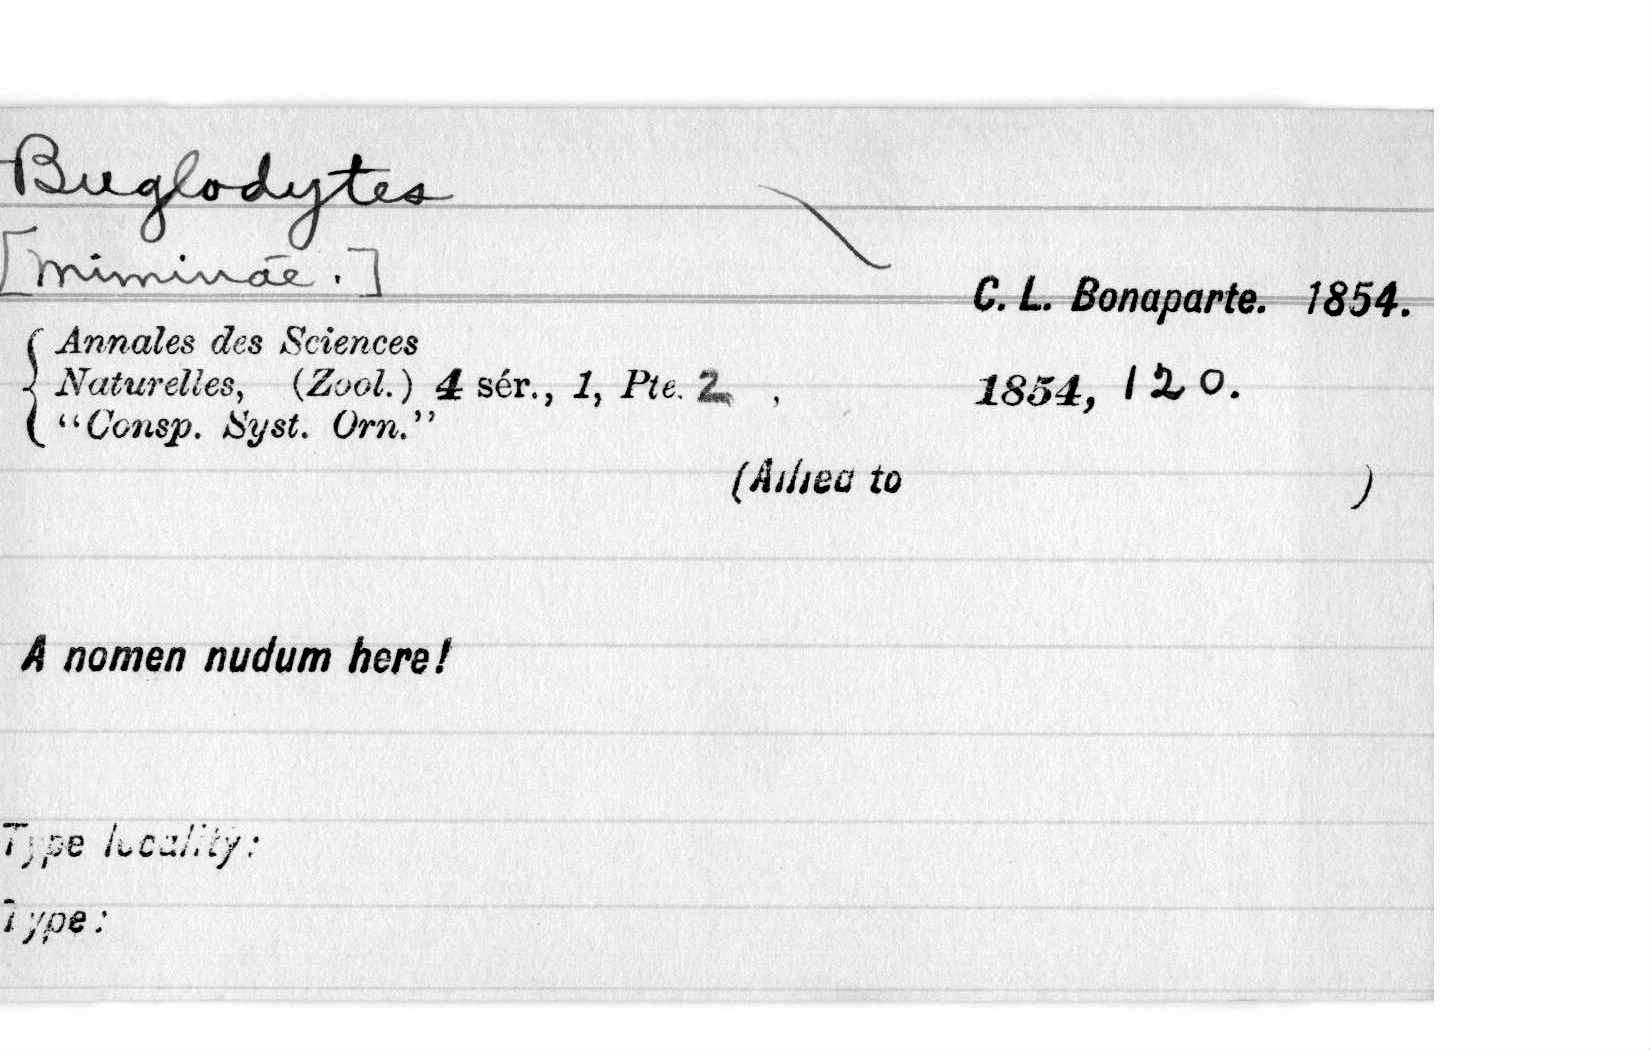 Buglodytes
[Miminae.]
C. L. Bonaparte. 1854.
Annales des Sciences
Naturelles, (Zool.) 4 sér., 1, Pte. 2, 1854, 120.
"Consp. Syst. Orn."
(Allied to )
A nomen nudum here!
Type locality:
Type: